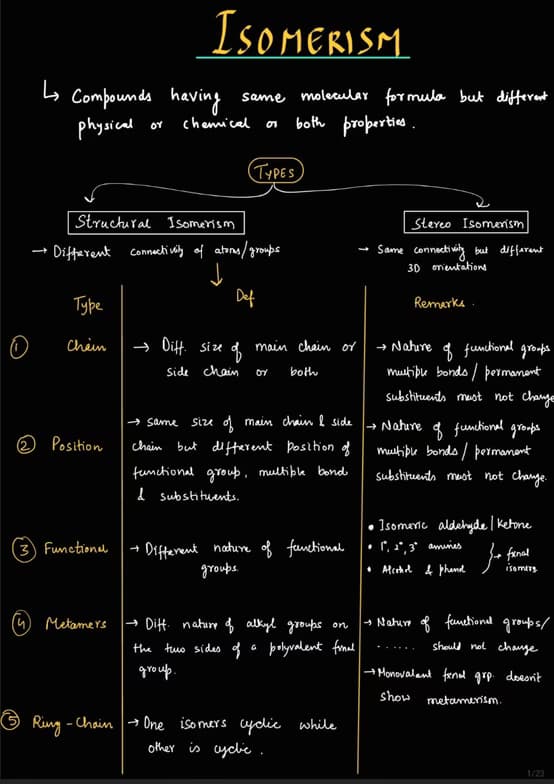 ISOMERISM
↳ Compounds having same molecular formula but different
physical or chemical or both properties.
TYPES
Structural Isomerism
→ Different connectivity of atoms/groups
Stereo Isomerism
→ Same connectivity but different
3D orientations
Type
Def
Remarks.
① Chain
→ Diff. size of main chain or
side chain or both
→ Nature of functional groups
multiple bonds / permanent
substituents must not change
② Position
→ same size of main chain & side
chain but different position of
functional group, multiple bond
& substituents.
→ Nature of functional groups
multiple bonds / permanent
substituents must not change.
③ Functional
→ Different nature of functional
groups
• Isomeric aldehyde/ketone
• 1°, 2°, 3° amines
• Alcohol & phenol
→ fxnal
isomers
④ Metamers
→ Diff. nature of alkyl groups on
the two sides of a polyvalent fxnal
group.
→ Nature of functional groups/
...... should not change
→ Monovalent fxnal grp. doesn't
show metamerism.
⑤ Ring-Chain
→ One isomers cyclic while
other is cyclic.
1/23